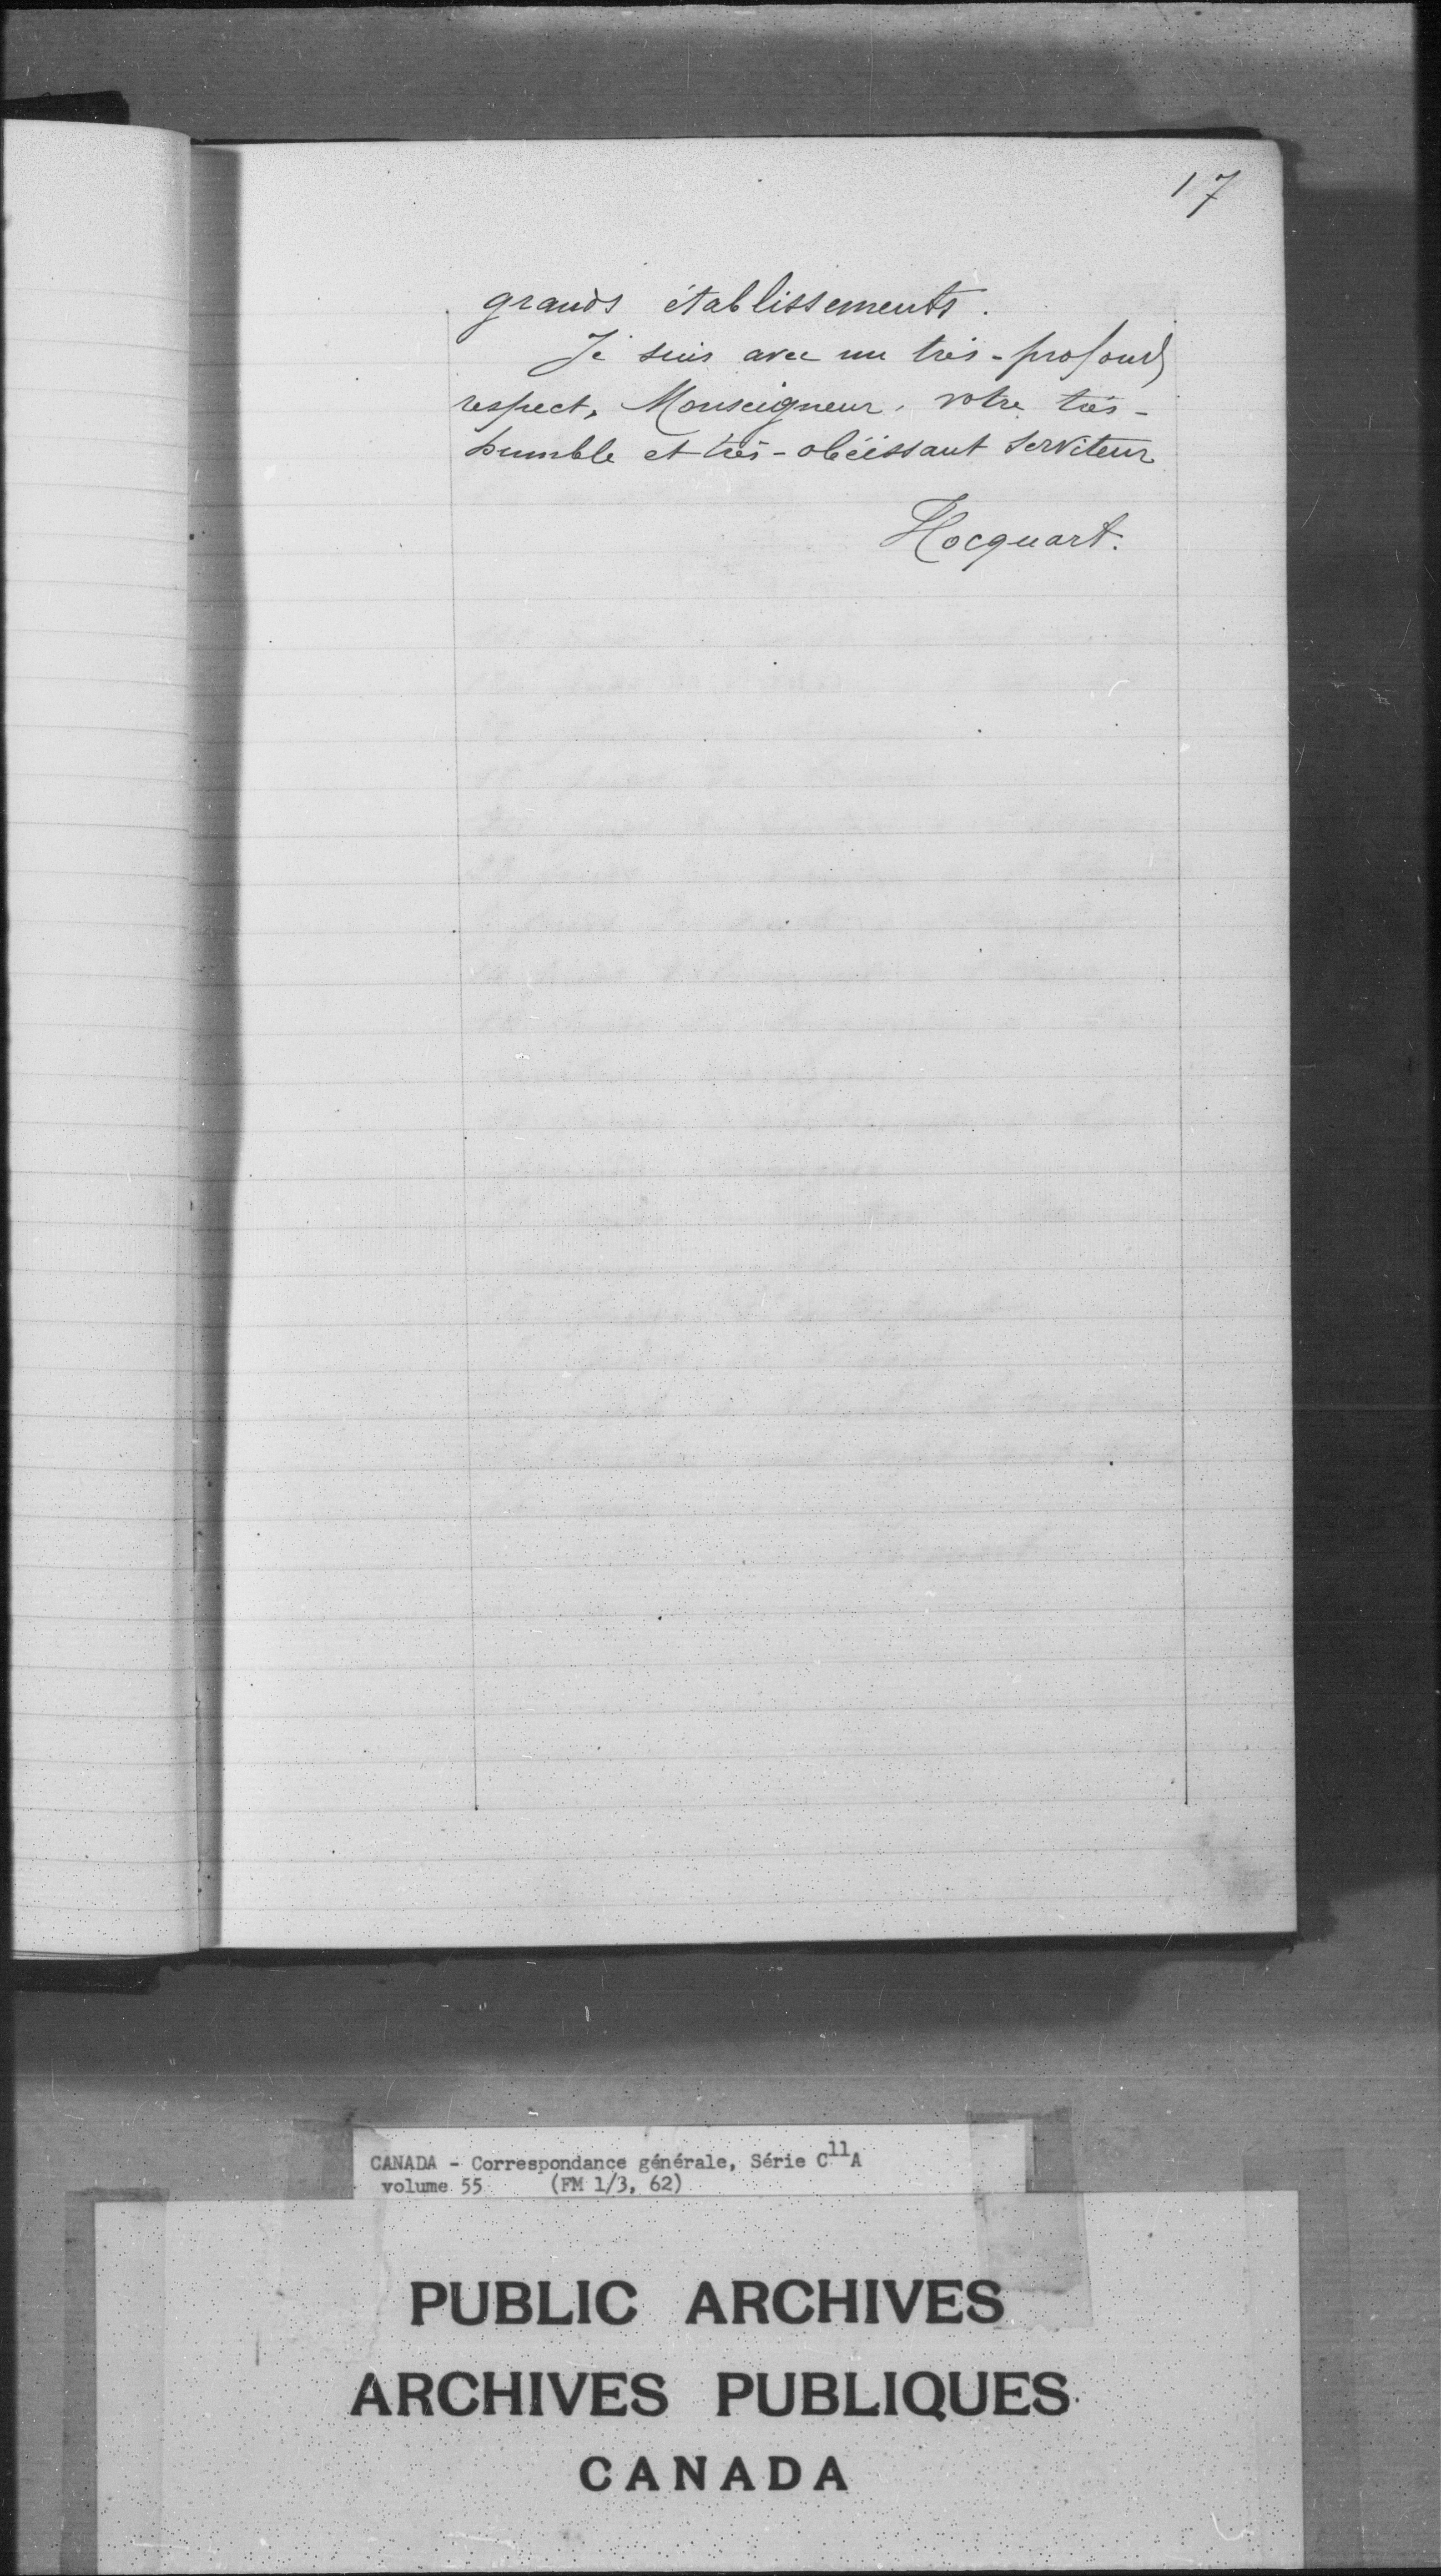 17
grands établissements.
Je suis avec un très-profond
respect, Monseigneur, votre très-
humble et très-obéissant serviteur
Hocquart.
CANADA - Correspondance générale, Série C11A
volume 55 (FM 1/3, 62)
PUBLIC ARCHIVES
ARCHIVES PUBLIQUES
CANADA